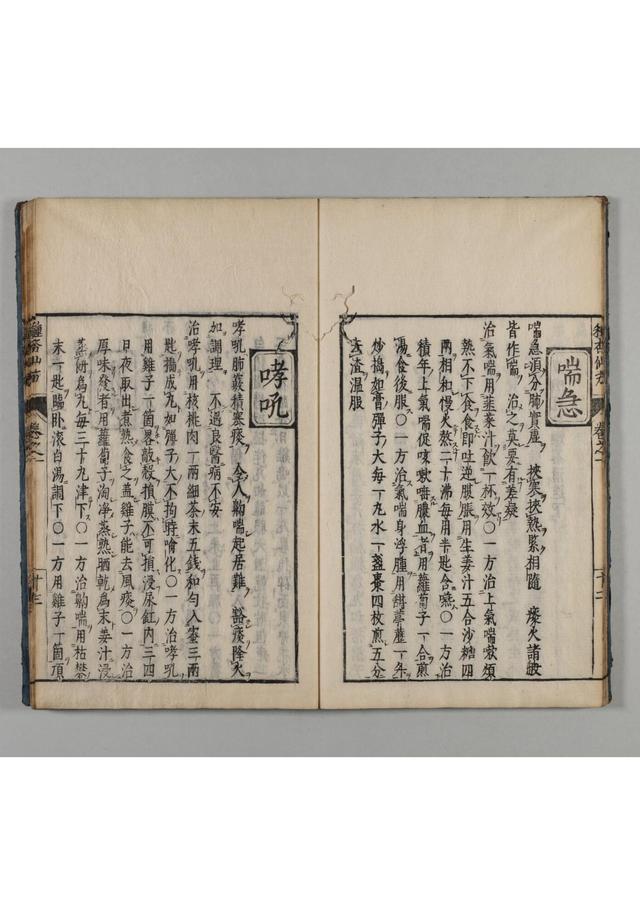 喘急
喘急須分肺實虛 挾寒挾熱緊相隨 痰火諸般
皆作喘 治之莫要有差疑
治氣喘用韭菜汁飲一杯效〇一方治上氣喘嗽煩
熱不下食食即吐逆腹脹用生姜汁五合沙糖四
兩相和慢火熬二十沸每用半匙含嚥〇一方治
積年上氣喘促咳嗽唾膿血者用蘿蔔子一合煎
湯食後服〇一方治氣喘身浮腫用甜葶藶一年
炒搗如膏彈子大每一丸水一盞棗四枚煎五分
去渣溫服
哮吼
哮吼肺竅積寒痰 令人齁喘起居難 豁痰降火
加調理 不遇良醫病不安
治哮吼用核桃肉一兩細茶末五錢和勻入蜜三兩
匙搗成丸如彈子大不拘時噙化〇一方治哮吼
用雞子一箇畧敲殼損膜不可損浸尿缸内三四
日夜取出煮熟食之蓋雞子能去風痰〇一方治
厚味發者用蘿蔔子淘淨蒸熟晒乾為末姜汁浸
蒸餅為丸每三十丸津下〇一方治齁喘用枯礬
末一匙臨卧滾白湯調下〇一方用雞子一箇頂